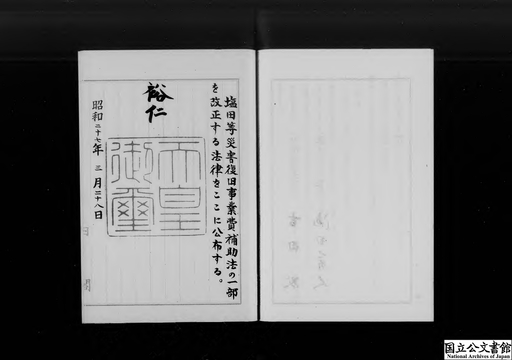 塩田等災害復旧事業費補助法の一部
を改正する法律をここに公布する。
裕仁
天皇
御璽
昭和二十七年三月二十八日
国立公文書館
National Archives of Japan